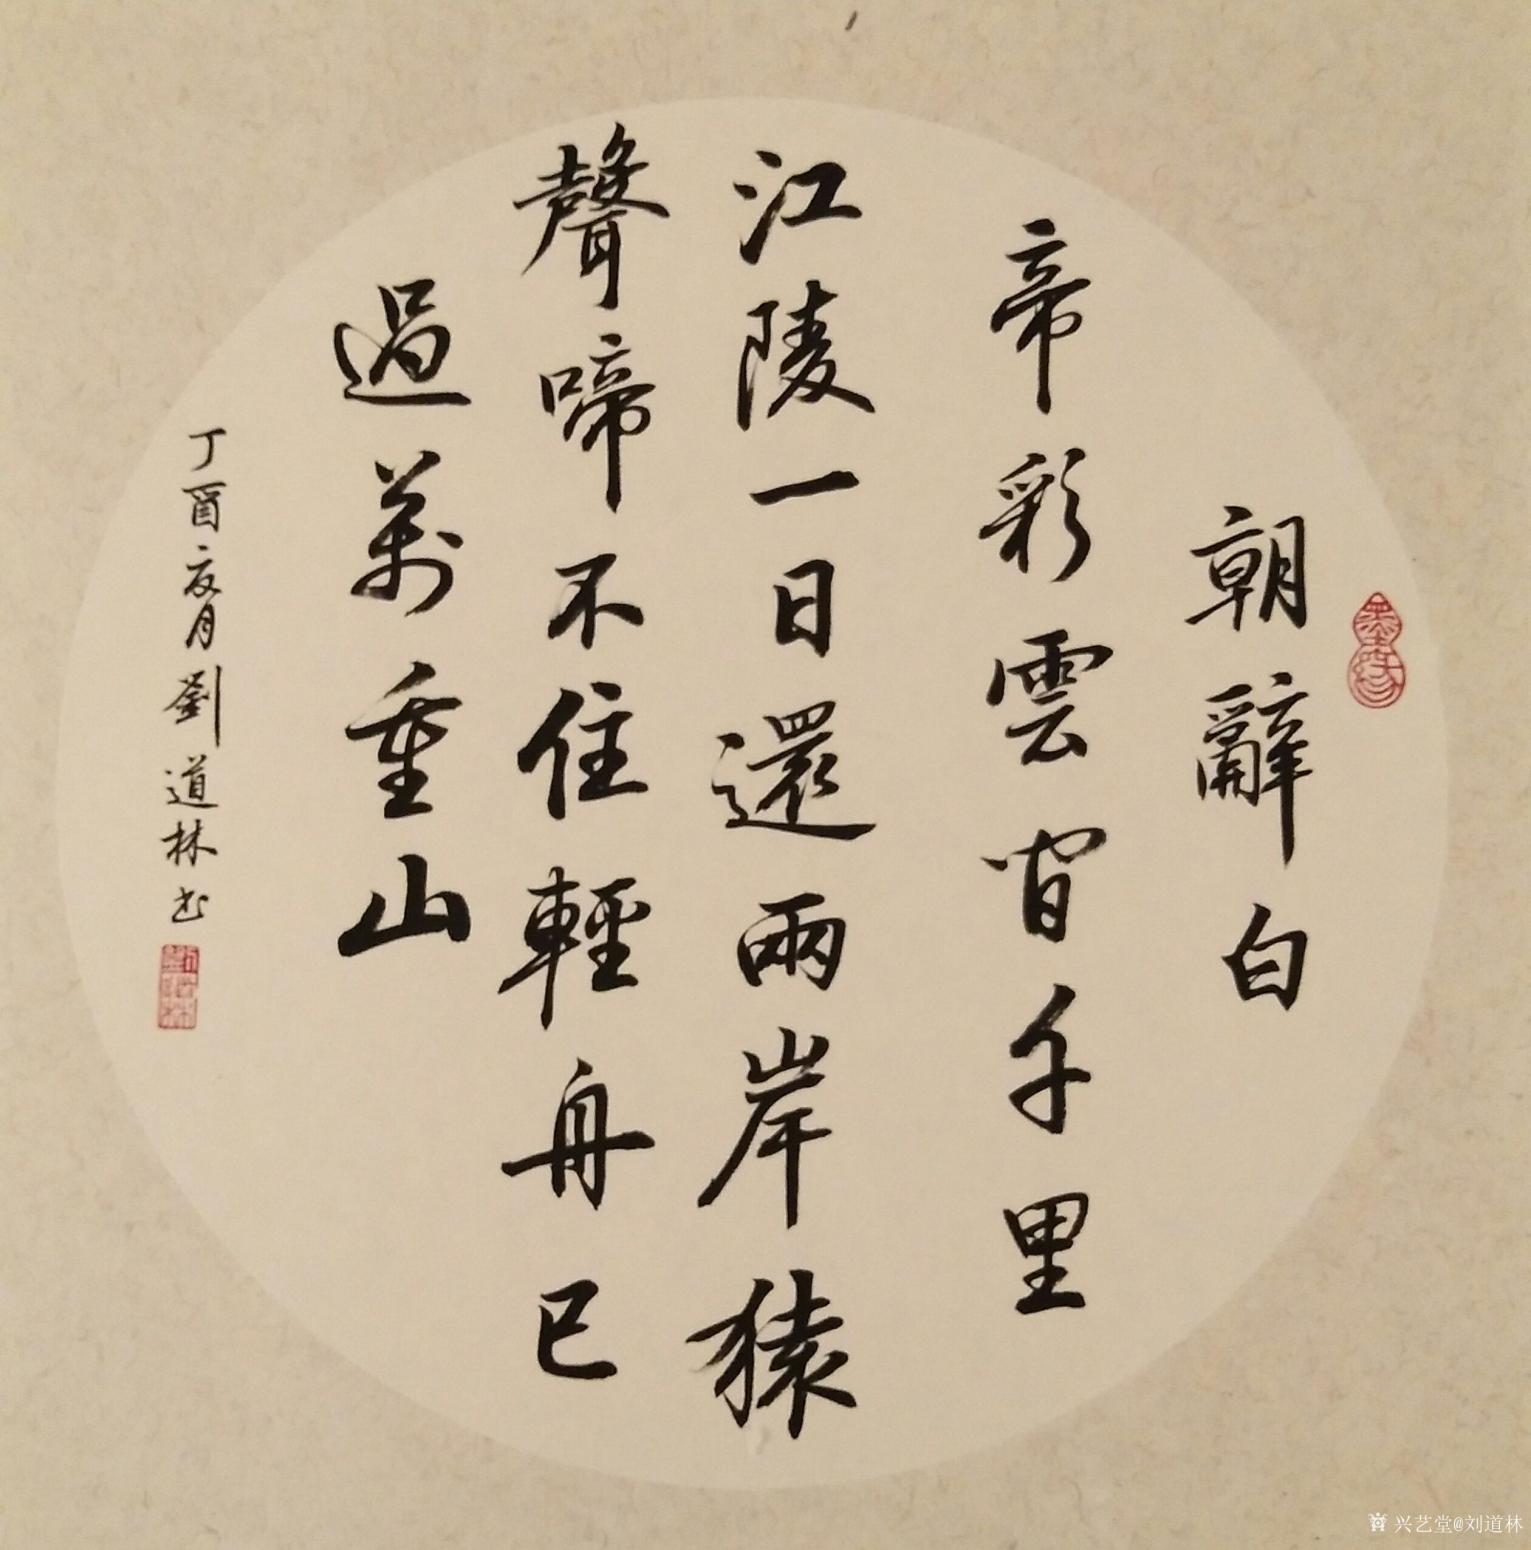 朝辭白
帝彩雲間千里
江陵一日還兩岸猿
聲啼不住輕舟已
過萬重山
丁酉亥月劉道林书
劉道林
兴艺堂@刘道林